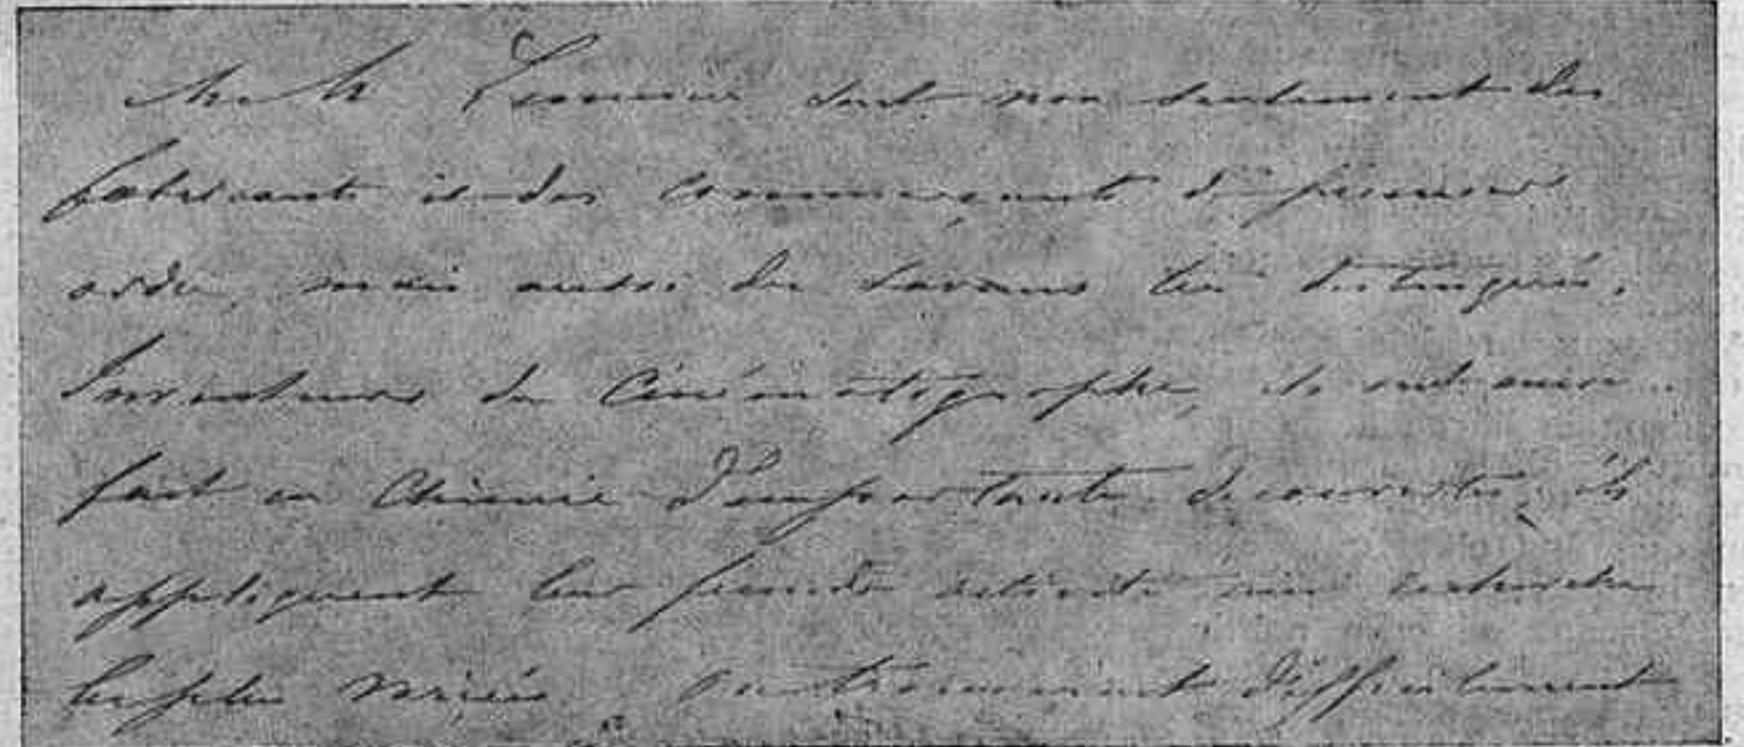 M. M. Lumière sont non seulement des
fabricants et des commerçants de premier
ordre, mais aussi des savants très distingués.
Inventeurs du Cinématographe, ils ont aussi
fait en Chimie d'importantes découvertes, ils
appliquent leur féconde activité aux recherches
les plus variées. On trouverait difficilement